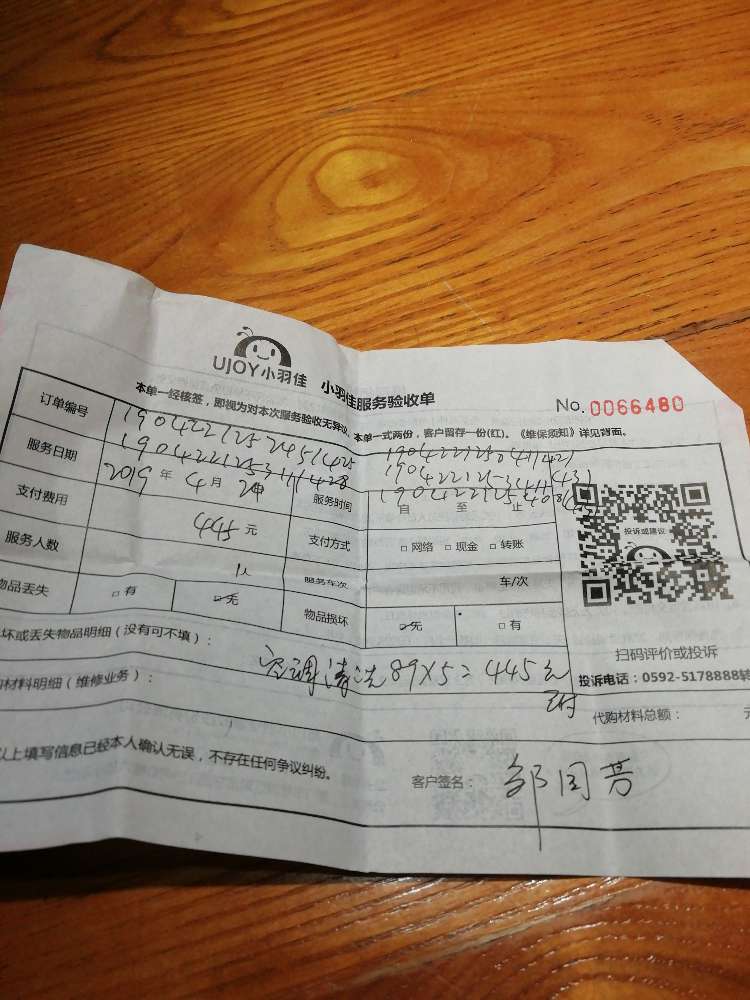 UJOY小羽佳 小羽佳服务验收单
No. 0066480
本单一经核签，即视为对本次服务验收无异议。本单一式两份，客户留存一份(红)。《维保须知》详见背面。
订单编号
服务日期 2019 年 4 月 服务时间 自 至 止
支付费用 445 元 支付方式 □ 网络 □ 现金 □ 转账
服务人数 服务车次 车/次
物品丢失 □ 有 □ 无 物品损坏 □ 无 □ 有
投诉或建议
扫码评价或投诉
投诉电话：0592-5178888转
坏或丢失物品明细（没有可不填）：
空调清洗89×5=445元
材料明细（维修业务）：
代购材料总额：
以上填写信息已经本人确认无误，不存在任何争议纠纷。
客户签名：